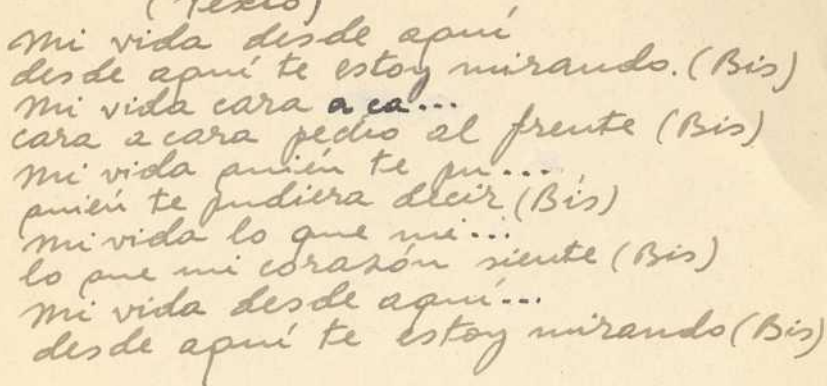 (Texto)
mi vida desde aquí
desde aquí te estoy mirando. (Bis)
mi vida cara a ca...
cara a cara pecho al frente (Bis)
mi vida quién te pu...
quién te pudiera decir (Bis)
mi vida lo que mi...
lo que mi corazón siente (Bis)
mi vida desde aquí...
desde aquí te estoy mirando (Bis)